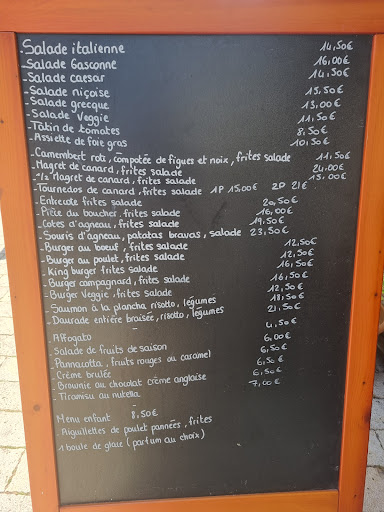 - Salade italienne 14,50€
- Salade Gasconne 16,00€
- Salade caesar 14,50€
- Salade niçoise 15,50€
- Salade grecque 13,00€
- Salade Veggie 11,50€
- Tatin de tomates 8,50€
- Assiette de foie gras 10,50€
- Camembert roti, compotée de figues et noix, frites salade 11,50€
- Magret de canard, frites salade 24,00€
- 1/2 Magret de canard, frites salade 15,00€
- Tournedos de canard, frites salade 1P 15,00€ 2P 21€
- Entrecote frites salade 20,50€
- Pièce du boucher, frites salade 16,00€
- Cotes d'agneau, frites salade 19,50€
- Souris d'agneau, patatas bravas, salade 23,50€
- Burger au boeuf, frites salade 12,50€
- Burger au poulet, frites salade 12,50€
- King burger frites salade 16,50€
- Burger campagnard, frites salade 16,50€
- Burger Veggie, frites salade 12,50€
- Saumon à la plancha risotto, légumes 18,50€
- Daurade entière braisée, risotto, légumes 21,50€
- Affogato 4,50€
- Salade de fruits de saison 6,00€
- Pannacotta, fruits rouges ou caramel 6,50€
- Crème brulée 6,50€
- Brownie au chocolat crème anglaise 6,50€
- Tiramisu au nutella 7,00€
Menu enfant 8,50€
- Aiguillettes de poulet pannées, frites
1 boule de glace (parfum au choix)